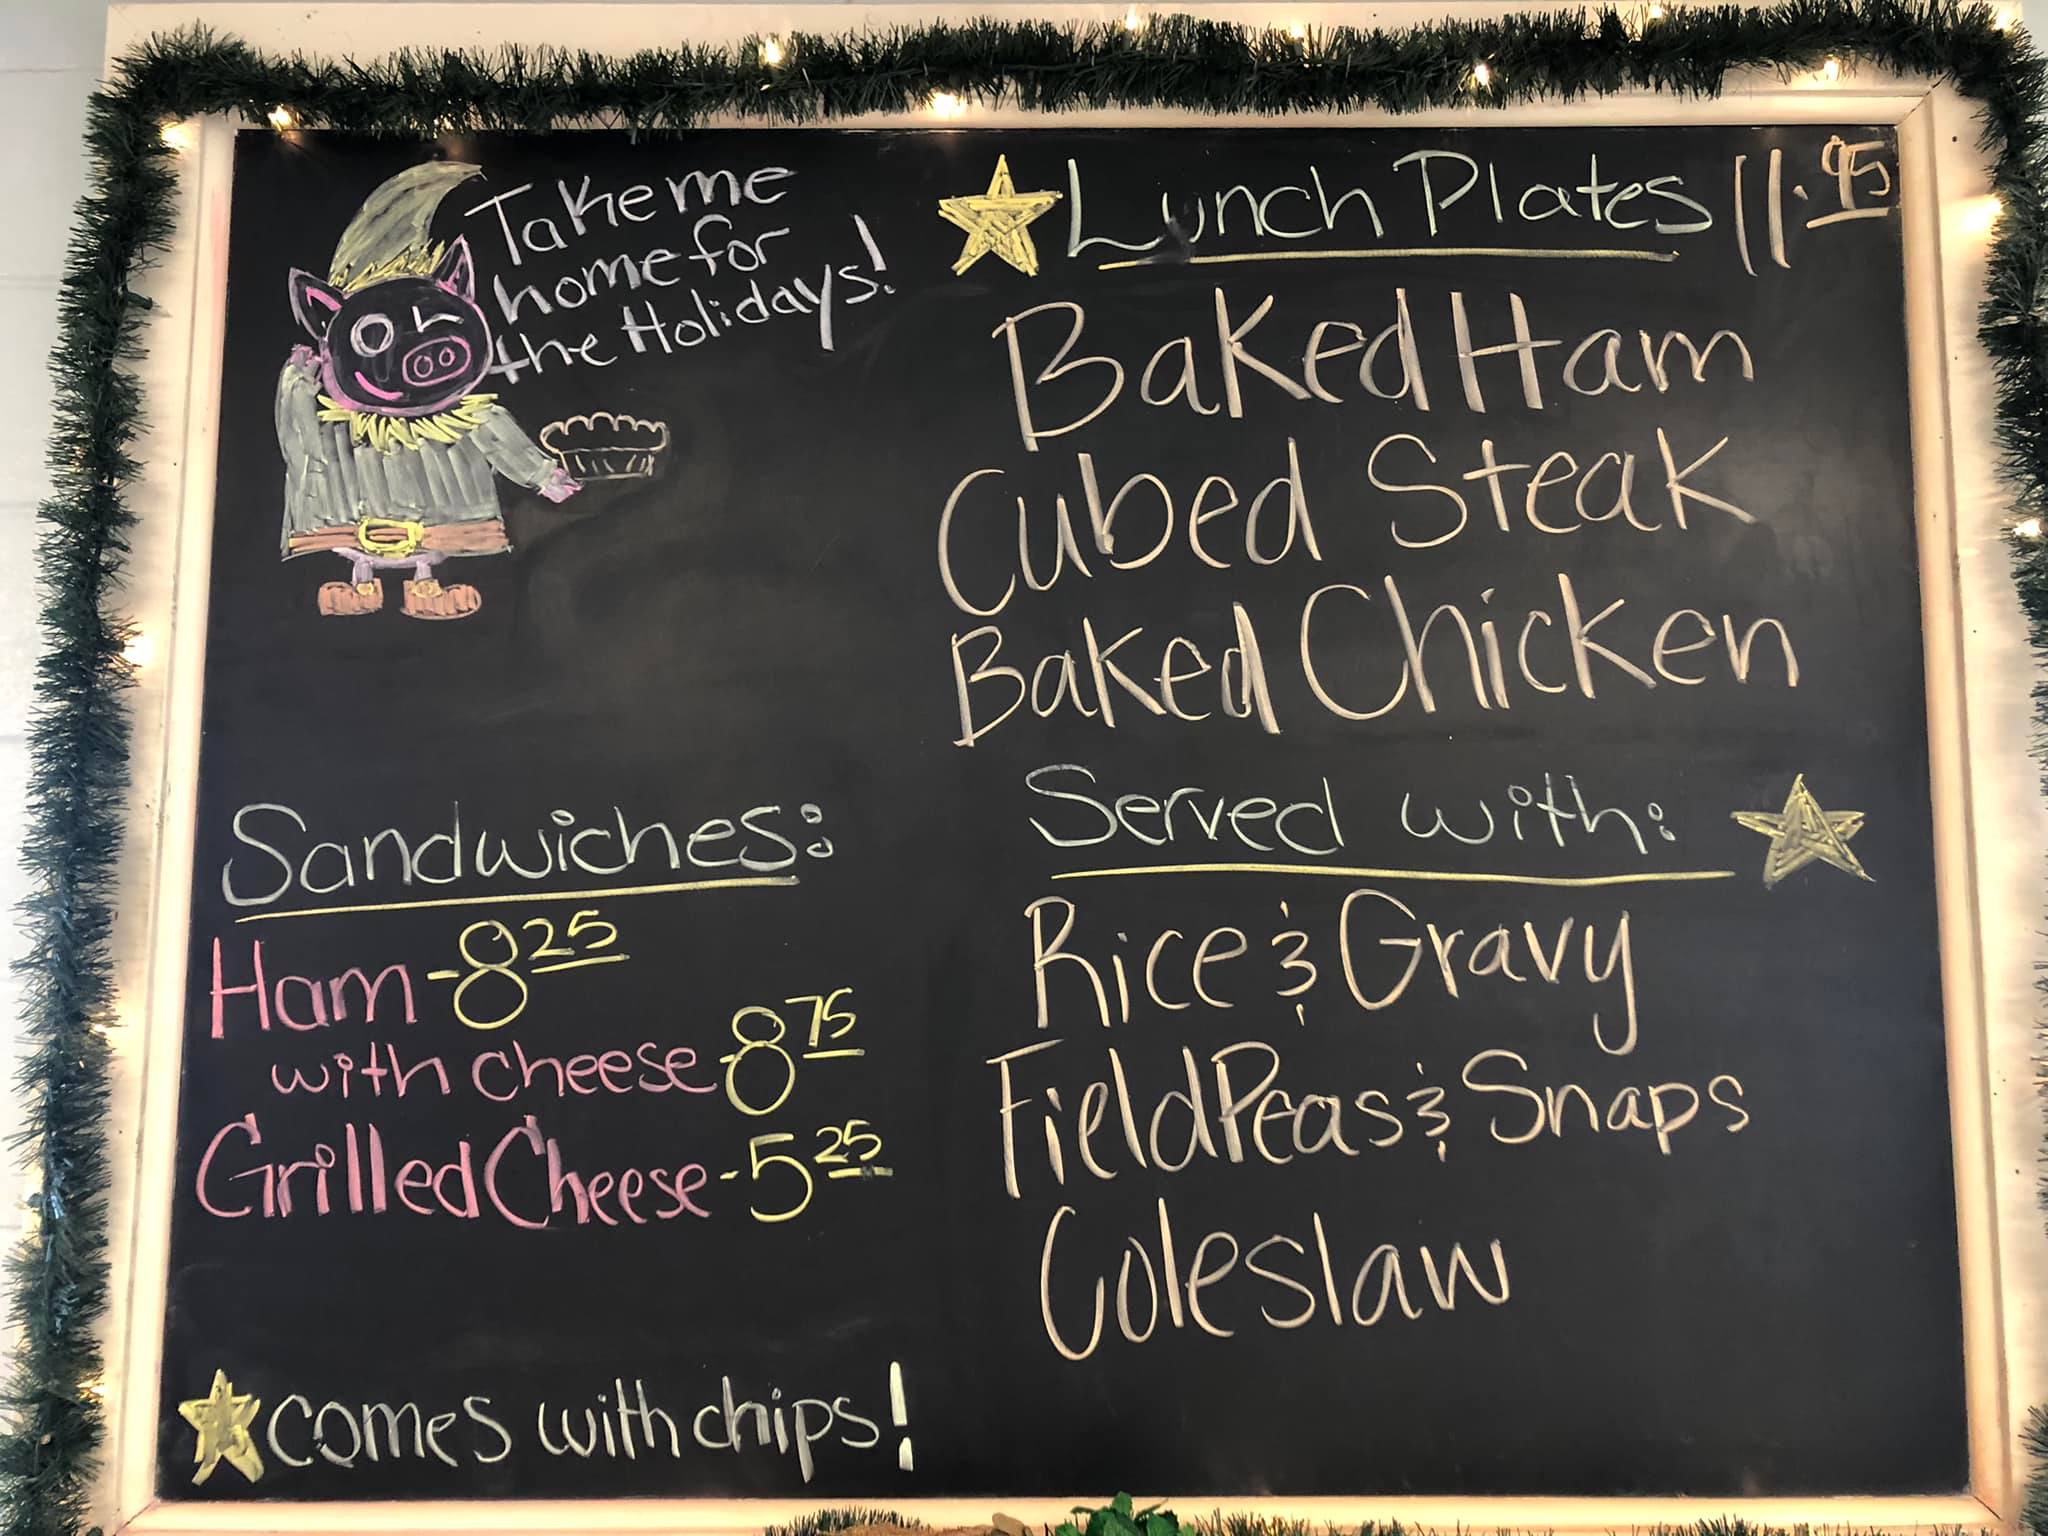 Take me
home for
the Holidays!
Lunch Plates 11.95
Baked Ham
Cubed Steak
Baked Chicken
Served with:
Rice & Gravy
Field Peas & Snaps
Coleslaw
Sandwiches:
Ham - 8 25
with cheese - 8 75
Grilled Cheese - 5 25
comes with chips!